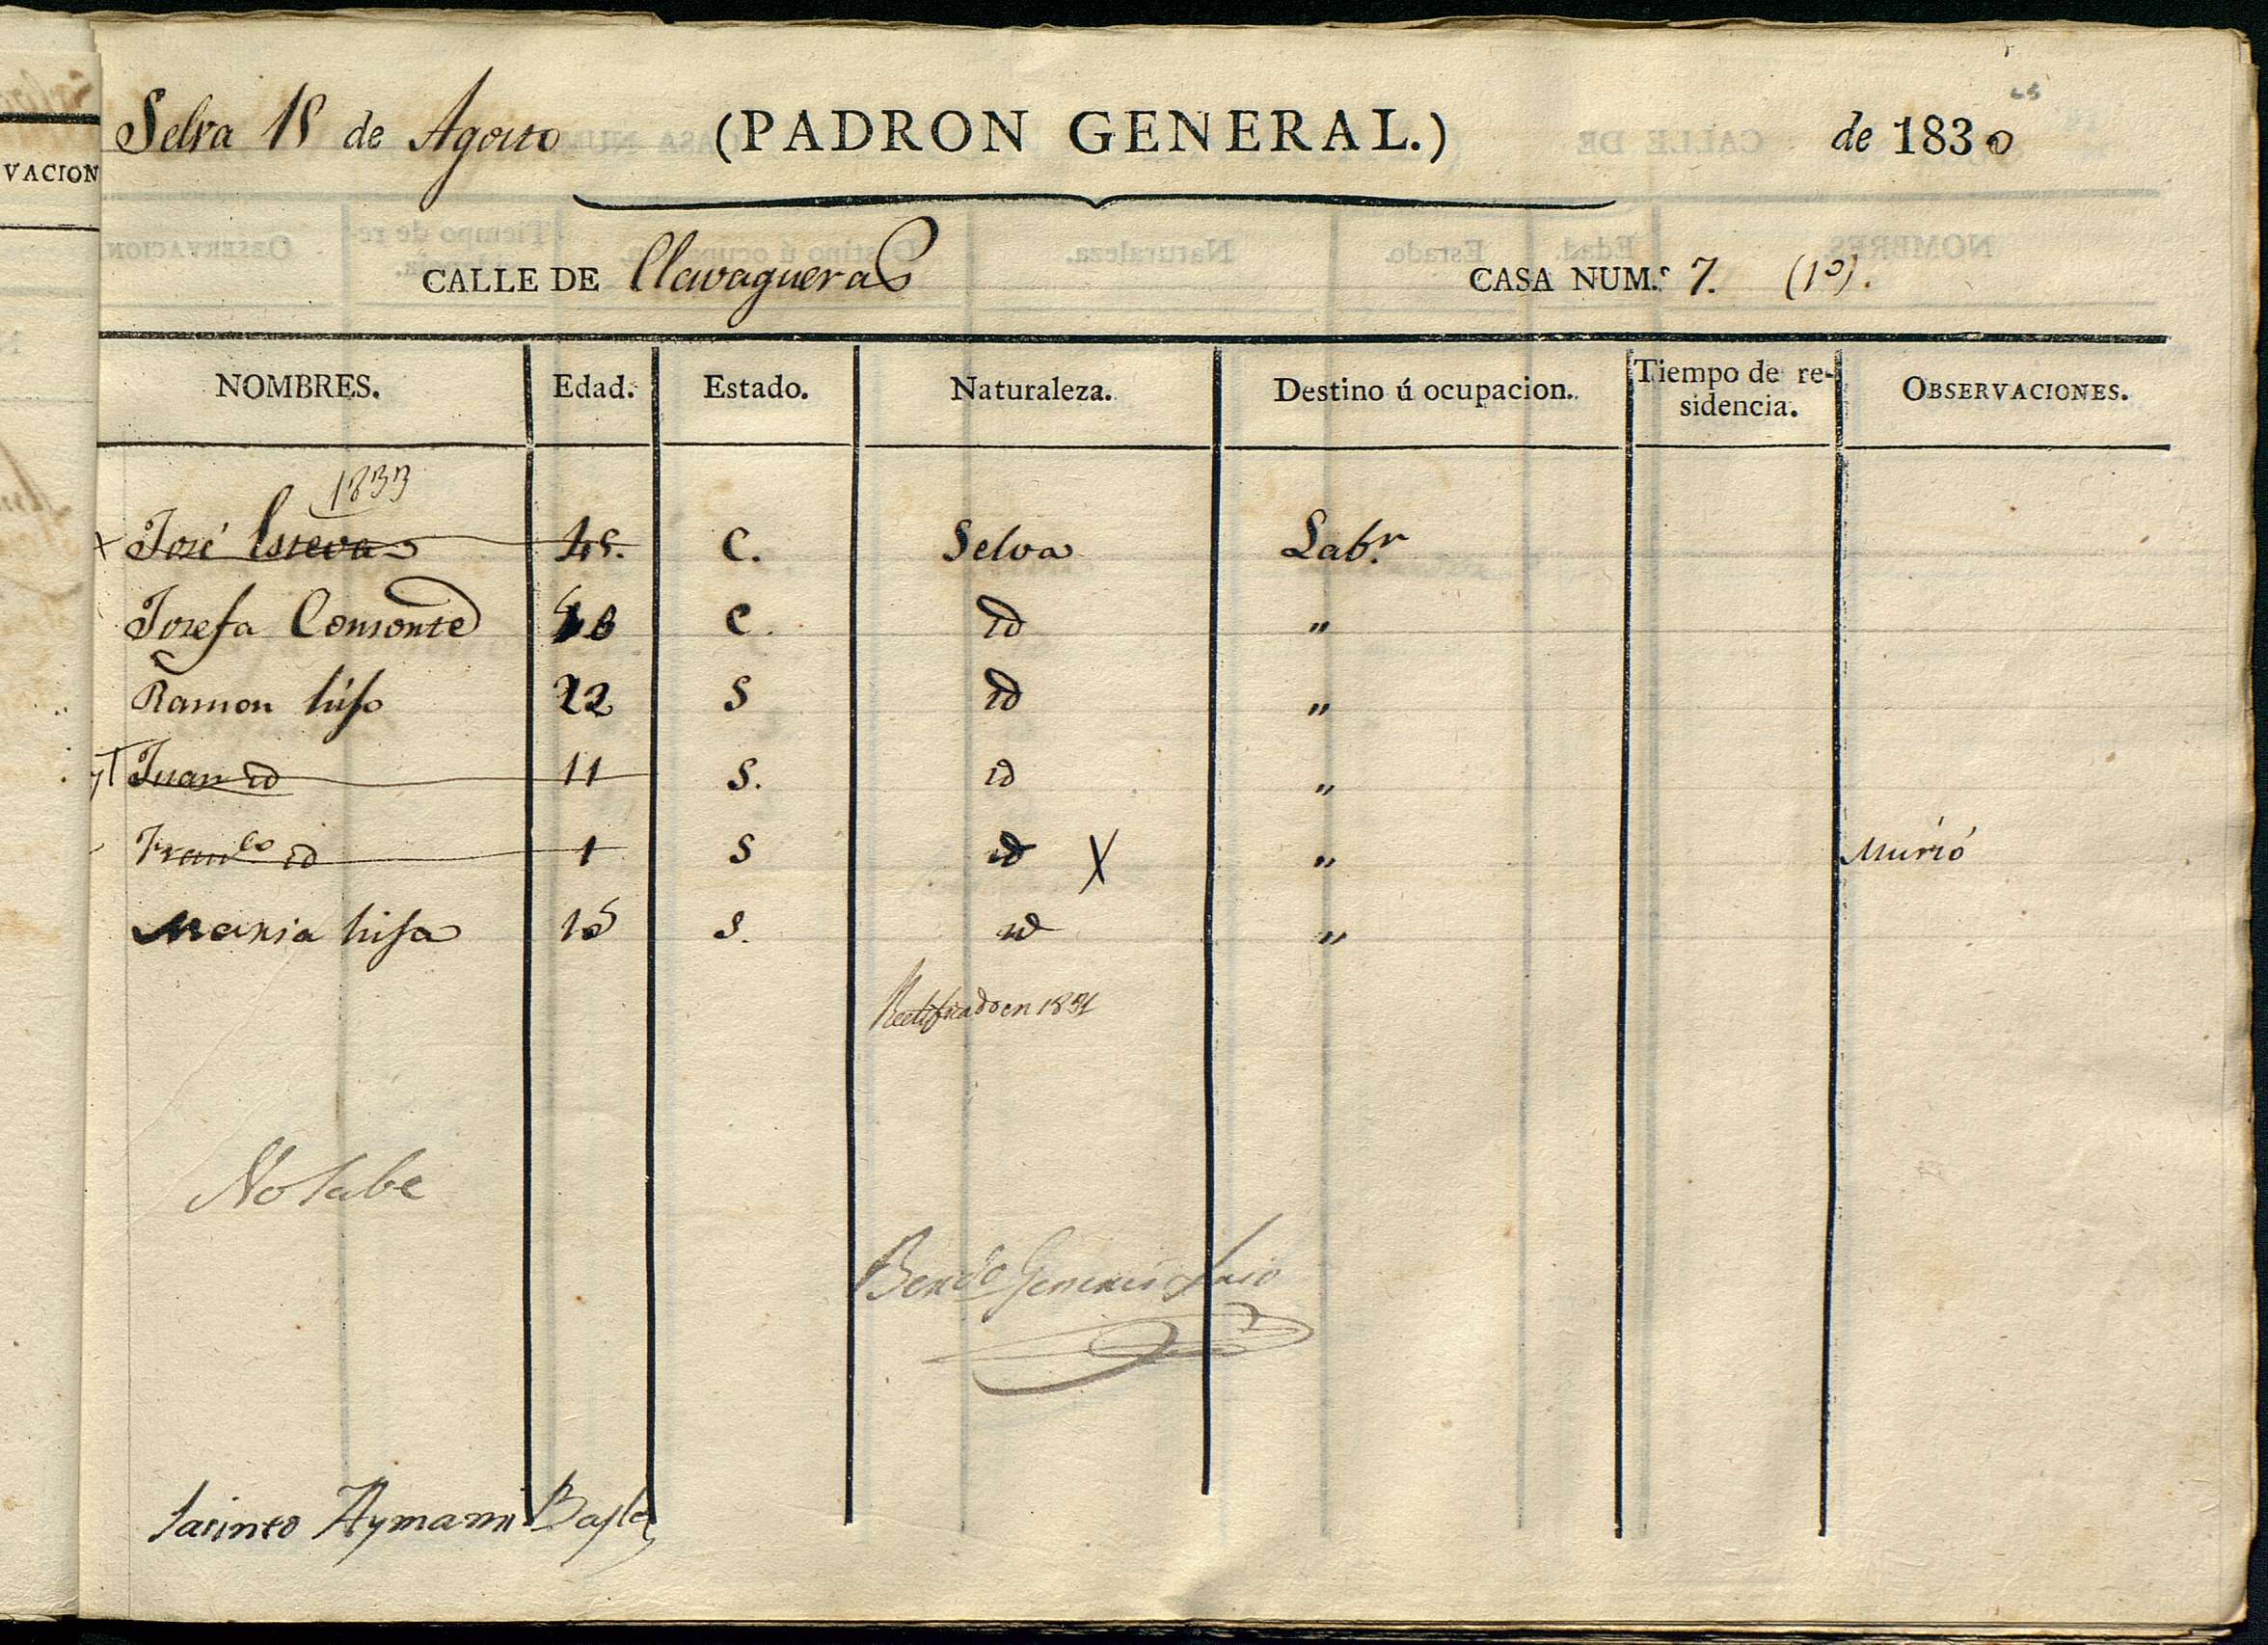 VACION
Selva 18 de Agosto (PADRON GENERAL.) de 1830
CALLE DE Clavagueras CASA NUM.º 7. (1º).
NOMBRES. Edad. Estado. Naturaleza. Destino ú ocupacion. Tiempo de re-sidencia. OBSERVACIONES.
1833
José Esteva 45. C. Selva Lab.r
Josefa C. id "
Ramon hijo 22 S id "
Juan id 11 S. id "
Fran.co id 1 S id X " Murió
Maria hija S. id "
Rectificado en 1831
No sabe
Jacinto Aymami Bayle